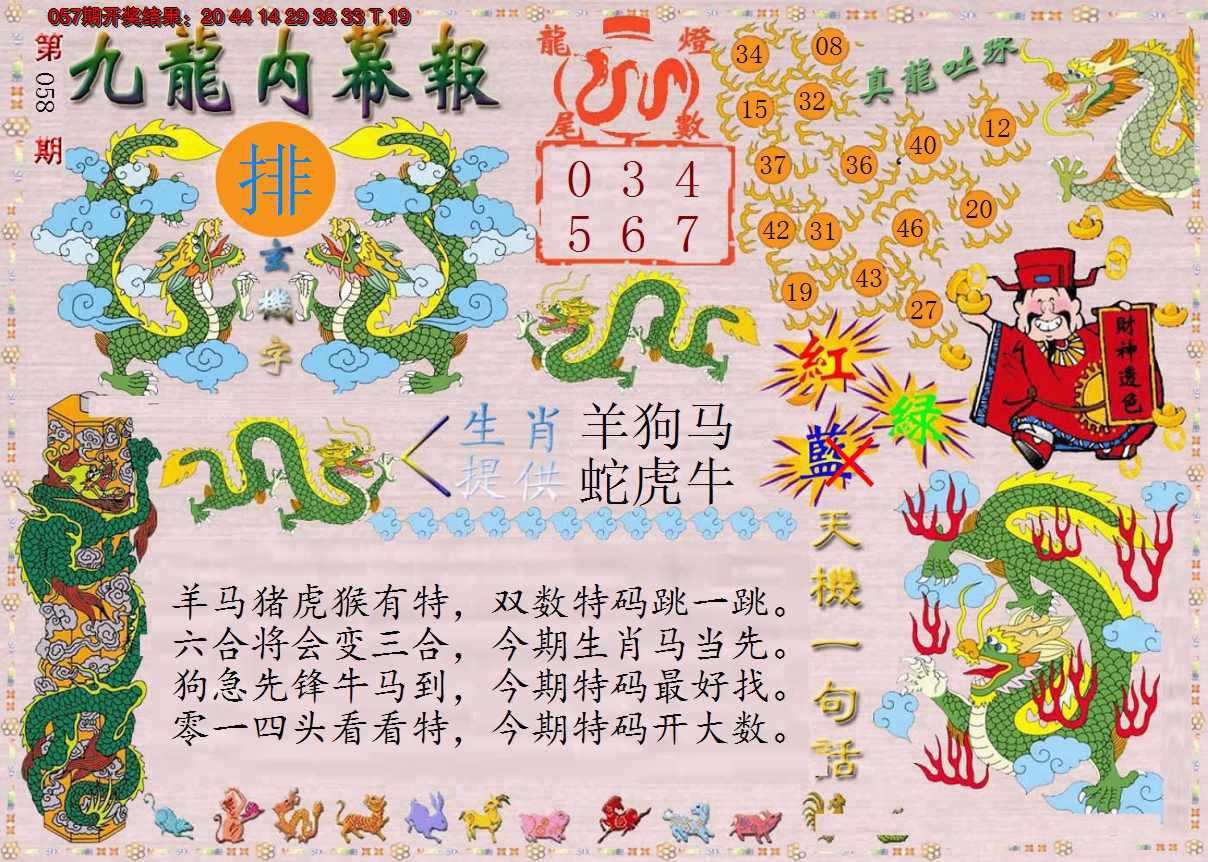 057期开奖结果：20 44 14 29 38 33 T 19
第058期
九龍内幕報
排
玄機字
龍燈尾數
0 3 4
5 6 7
真龍吐珠
34 08
15 32
40 12
37 36
42 31 46 20
19 43 27
紅
綠
藍
財神透色
生肖提供
羊狗马
蛇虎牛
天機一句话
羊马猪虎猴有特，双数特码跳一跳。
六合将会变三合，今期生肖马当先。
狗急先锋牛马到，今期特码最好找。
零一四头看看特，今期特码开大数。